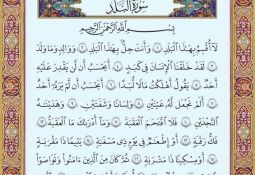 سورة البلد
بسم الله الرحمن الرحيم
لَا أُقْسِمُ بِهَٰذَا الْبَلَدِ ١ وَأَنتَ حِلٌّ بِهَٰذَا الْبَلَدِ ٢ وَوَالِدٍ وَمَا وَلَدَ
٣ لَقَدْ خَلَقْنَا الْإِنسَانَ فِي كَبَدٍ ٤ أَيَحْسَبُ أَن لَّن يَقْدِرَ عَلَيْهِ
أَحَدٌ ٥ يَقُولُ أَهْلَكْتُ مَالًا لُّبَدًا ٦ أَيَحْسَبُ أَن لَّمْ يَرَهُ أَحَدٌ
٧ أَلَمْ نَجْعَل لَّهُ عَيْنَيْنِ ٨ وَلِسَانًا وَشَفَتَيْنِ ٩ وَهَدَيْنَاهُ
النَّجْدَيْنِ ١٠ فَلَا اقْتَحَمَ الْعَقَبَةَ ١١ وَمَا أَدْرَاكَ مَا الْعَقَبَةُ ١٢
فَكُّ رَقَبَةٍ ١٣ أَوْ إِطْعَامٌ فِي يَوْمٍ ذِي مَسْغَبَةٍ ١٤ يَتِيمًا ذَا مَقْرَبَةٍ
١٥ أَوْ مِسْكِينًا ذَا مَتْرَبَةٍ ١٦ ثُمَّ كَانَ مِنَ الَّذِينَ آمَنُوا وَتَوَاصَوْا